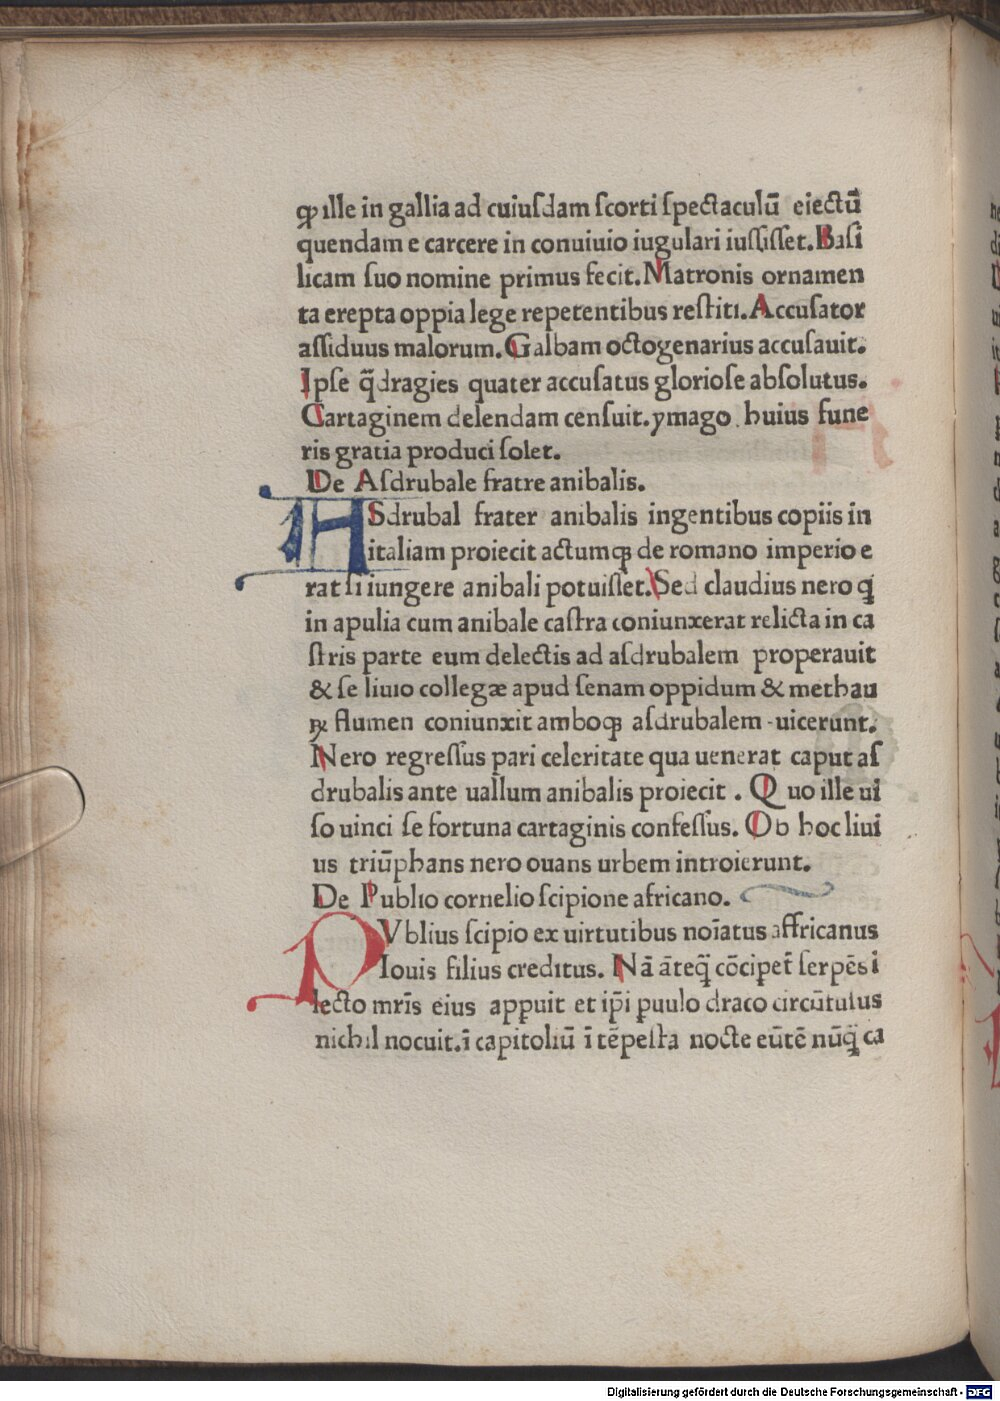 ꝙ ille in gallia ad cuiuſdam ſcorti ſpectaculū eiectū
quendam e carcere in conuiuio iugulari iuſſiſſet. Baſi
licam ſuo nomine primus fecit. Matronis ornamen
ta erepta oppia lege repetentibus reſtiti. Accuſator
aſſiduus malorum. Galbam octogenarius accuſauit.
Ipſe q̄dragies quater accuſatus glorioſe abſolutus.
Cartaginem delendam cenſuit. ymago huius fune
ris gratia produci ſolet.
De Aſdrubale fratre anibalis.
ASdrubal frater anibalis ingentibus copiis in
italiam proiecit actumqꝫ de romano imperio e
rat ſi iungere anibali potuiſſet. Sed claudius nero q̄
in apulia cum anibale caſtra coniunxerat relicta in ca
ſtris parte eum delectis ad aſdrubalem properauit
& ſe liuio collegæ apud ſenam oppidum & methau
ꝝ flumen coniunxit amboqꝫ aſdrubalem uicerunt.
Nero regreſſus pari celeritate qua uenerat caput aſ
drubalis ante uallum anibalis proiecit. Quo ille ui
ſo uinci ſe fortuna cartaginis confeſſus. Ob hoc liui
us triūphans nero ouans urbem introierunt.
De Publio cornelio ſcipione africano.
PVblius ſcipio ex uirtutibus noīatus affricanus
Iouis filius creditus. Nā āteq̄ cōcipet̄ ſerpēs i
lecto mr̄is eius appuit et ip̄i puulo draco circūtulus
nichil nocuit. ī capitoliū ī tēpeſta nocte eūtē nūq̄ ca
Digitalisierung gefördert durch die Deutsche Forschungsgemeinschaft - DFG